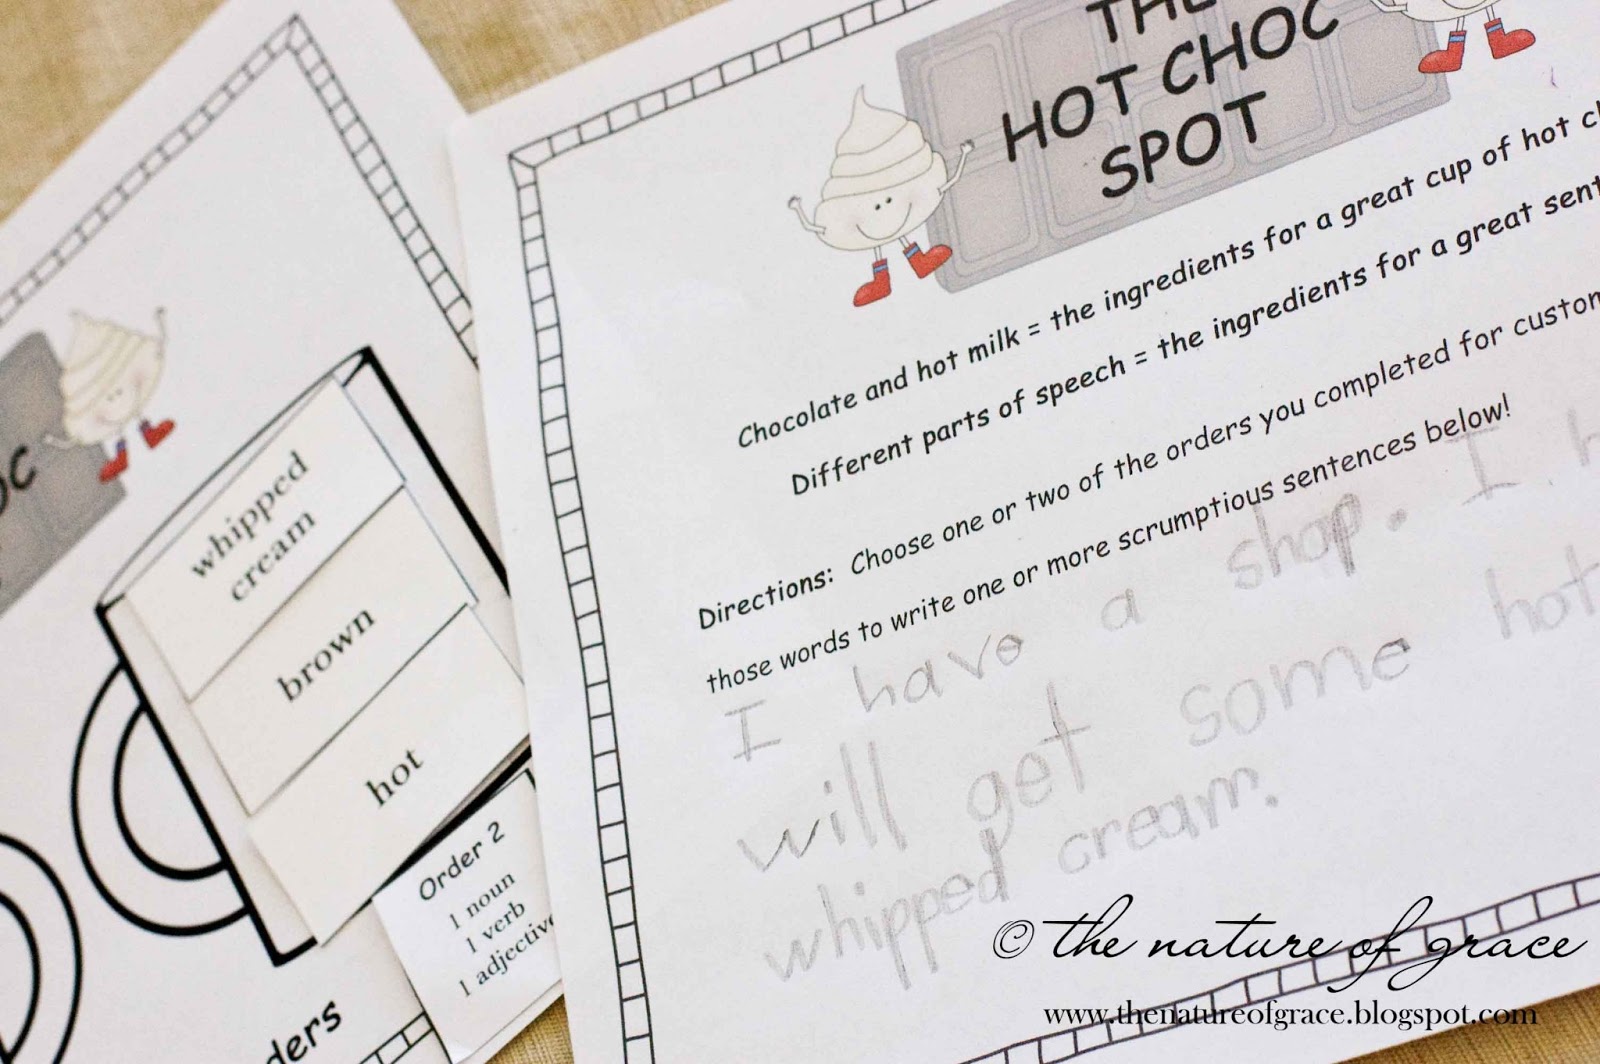 OC
whipped
cream
brown
hot
Order 2
1 noun
1 verb
1 adjective
ders
THE
HOT CHOC
SPOT
Chocolate and hot milk = the ingredients for a great cup of hot ch
Different parts of speech = the ingredients for a great sent
Directions: Choose one or two of the orders you completed for custom
those words to write one or more scrumptious sentences below!
I have a shop. I h
will get some hot
whipped cream.
© the nature of grace
www.thenatureofgrace.blogspot.com